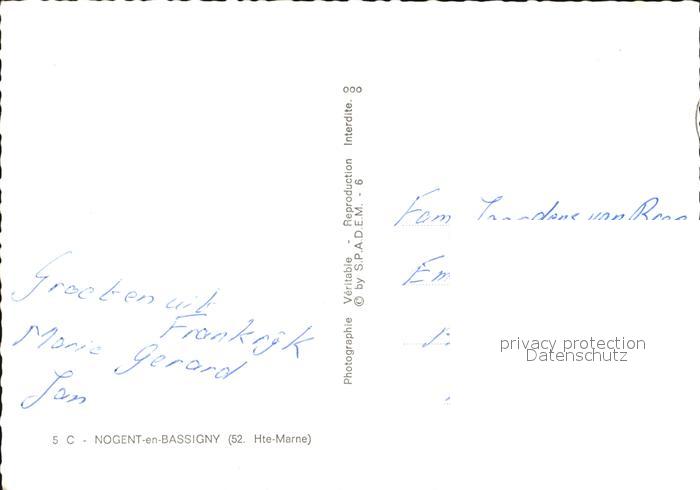 Groeten uit
Frankrijk
Marie Gerard
Jan
5 C - NOGENT-en-BASSIGNY (52. Hte-Marne)
Photographie Véritable - Reproduction Interdite.
© by S.P.A.D.E.M. - 6
Fam
privacy protection
Datenschutz